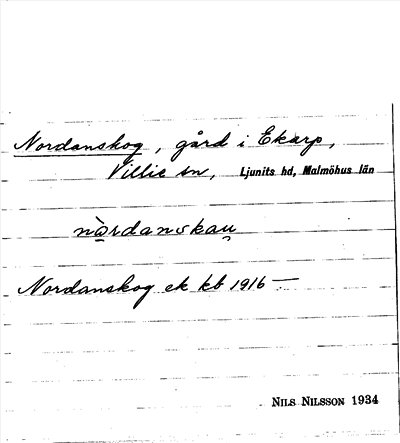 Nordanskog, gård i Ekarp,
Villie sn, Ljunits hd, Malmöhus län
nòrdanskau̯
Nordanskog ek kb 1916 —
NILS NILSSON 1934